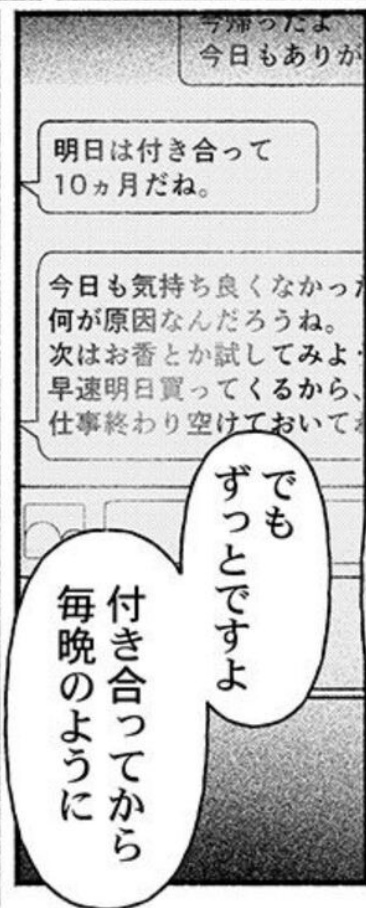 今帰ったよ
今日もありが
明日は付き合って
10ヵ月だね。
今日も気持ち良くなかった
何が原因なんだろうね。
次はお香とか試してみよ
早速明日買ってくるから、
仕事終わり空けておいてね
でも
ずっとですよ
付き合ってから
毎晩のように